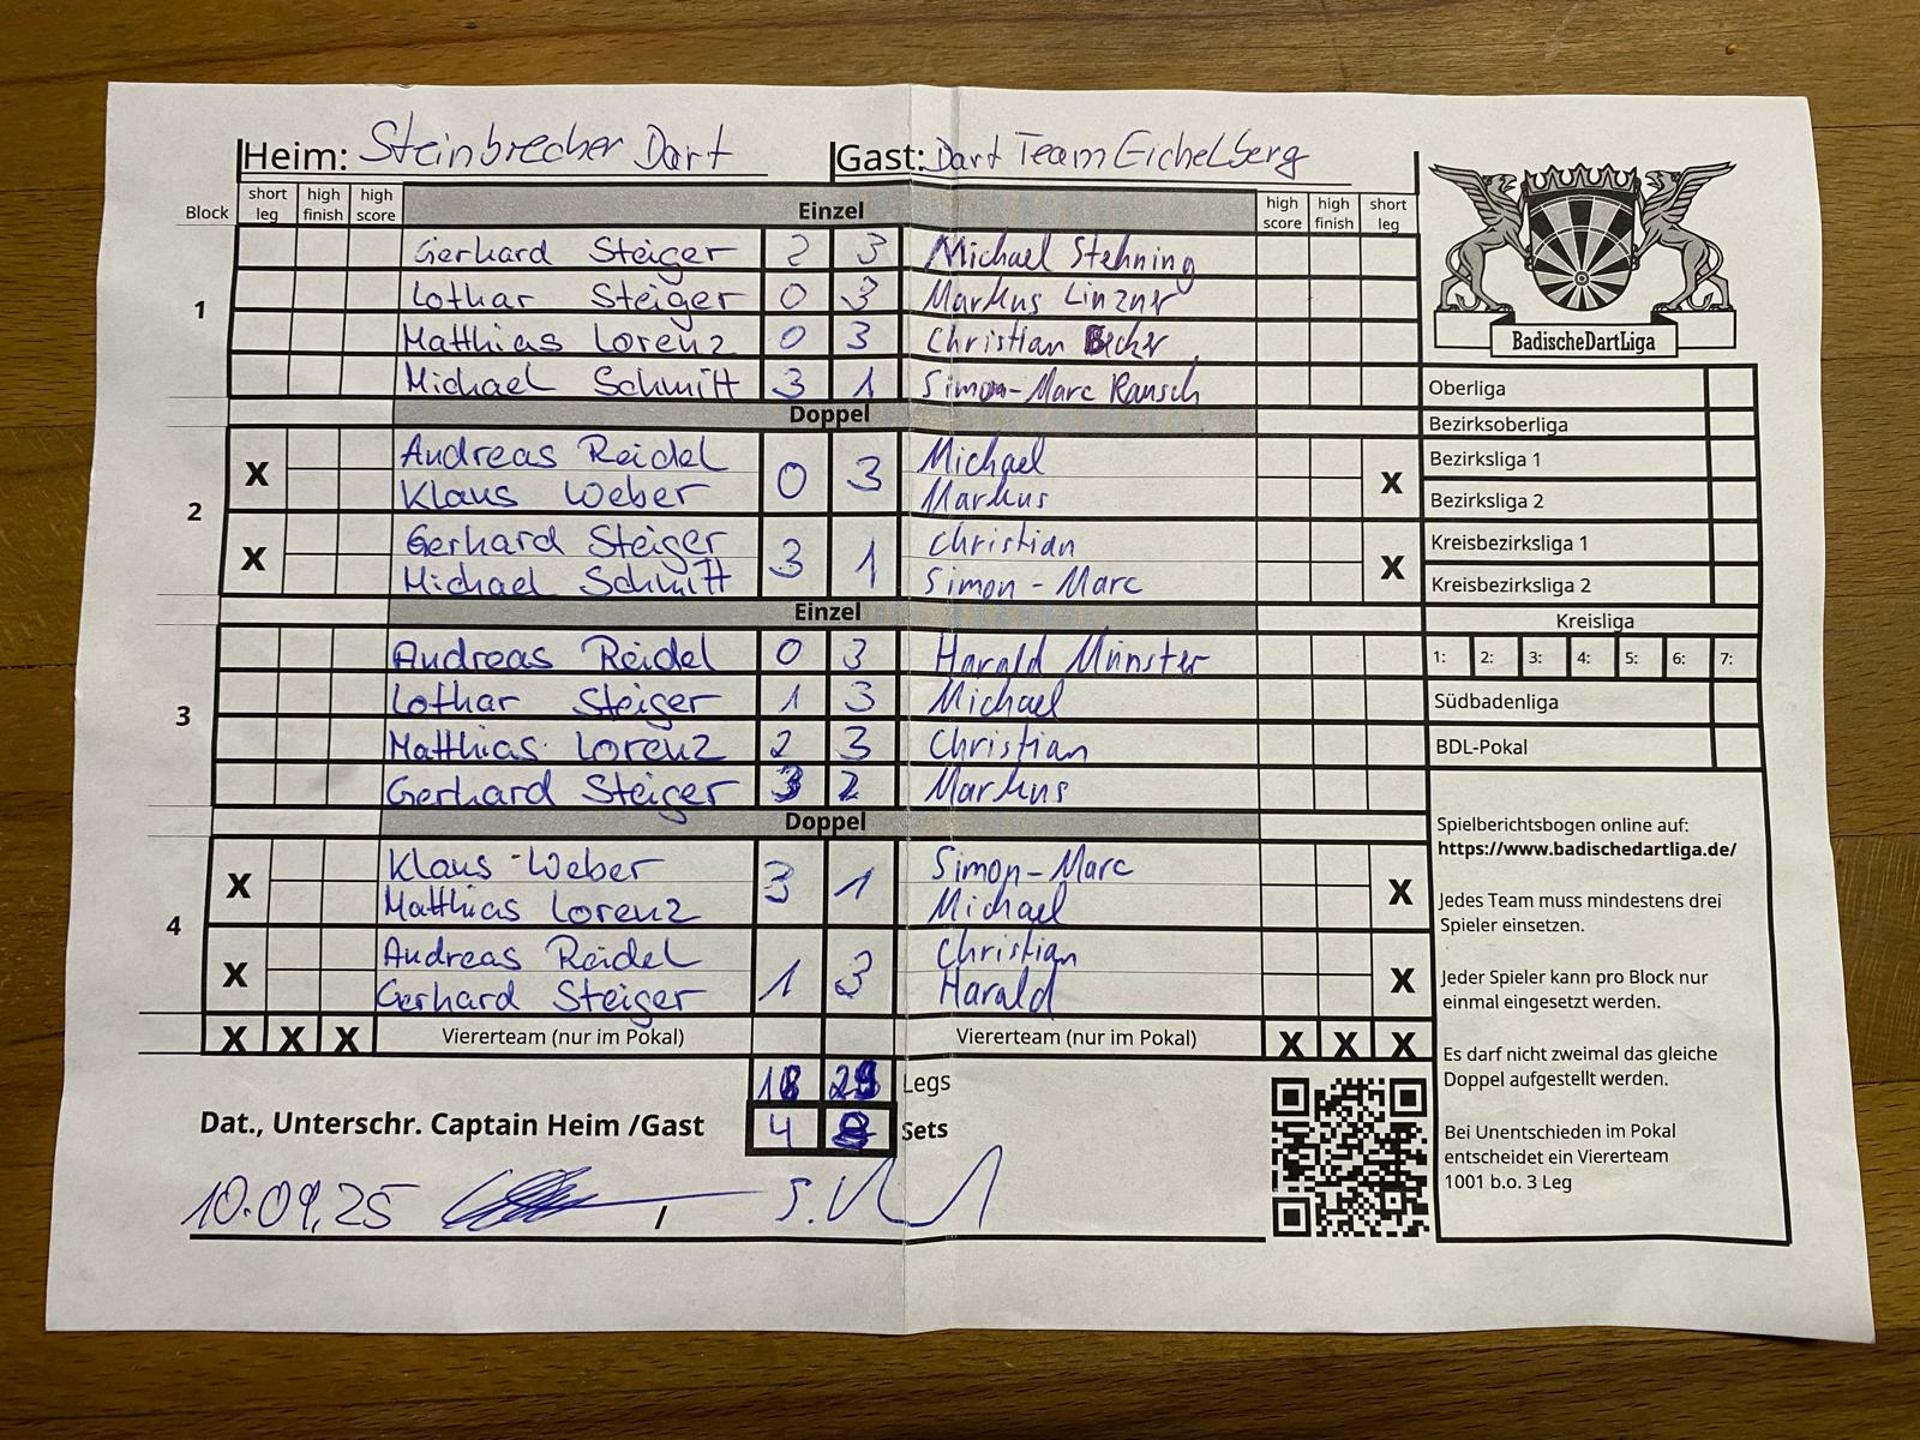 Heim: Steinbrecher Dart Gast: Dart Team Eichelberg
Block short leg high finish high score Einzel high score high finish short leg
1
Gerhard Steiger 2 3 Michael Stehning
Lothar Steiger 0 3 Markus Linzner
Matthias Lorenz 0 3 Christian Becker
Michael Schmitt 3 1 Simon-Marc Rausch
Doppel
2
X Andreas Reidel 0 3 Michael X
Klaus Weber Markus
X Gerhard Steiger 3 1 Christian X
Michael Schmitt Simon - Marc
Einzel
3
Andreas Reidel 0 3 Harald Münster
Lothar Steiger 1 3 Michael
Matthias Lorenz 2 3 Christian
Gerhard Steiger 3 2 Markus
Doppel
4
X Klaus Weber 3 1 Simon-Marc X
Matthias Lorenz Michael
X Andreas Reidel 1 3 Christian X
Gerhard Steiger Harald
X X X Viererteam (nur im Pokal) Viererteam (nur im Pokal) X X X
18 Legs
Dat., Unterschr. Captain Heim /Gast 4 8 Sets
10.09.25 /
BadischeDartLiga
Oberliga
Bezirksoberliga
Bezirksliga 1
Bezirksliga 2
Kreisbezirksliga 1
Kreisbezirksliga 2
Kreisliga
1: 2: 3: 4: 5: 6: 7:
Südbadenliga
BDL-Pokal
Spielberichtsbogen online auf:
https://www.badischedartliga.de/
Jedes Team muss mindestens drei
Spieler einsetzen.
Jeder Spieler kann pro Block nur
einmal eingesetzt werden.
Es darf nicht zweimal das gleiche
Doppel aufgestellt werden.
Bei Unentschieden im Pokal
entscheidet ein Viererteam
1001 b.o. 3 Leg